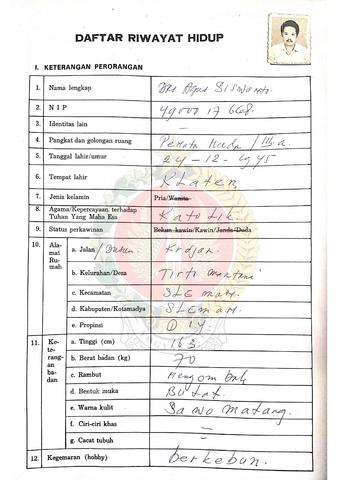 DAFTAR RIWAYAT HIDUP
I. KETERANGAN PERORANGAN
1. Nama lengkap Drs Agus Siswanto
2. N I P 4900017668.
3. Identitas lain –
4. Pangkat dan golongan ruang Penata Muda / III.a.
5. Tanggal lahir/umur 24-12-1945
6. Tempat lahir KLaten,
7. Jenis kelamin Pria/Wanita
8. Agama/Kepercayaan terhadap
Tuhan Yang Maha Esa Katolik.
9. Status perkawinan Belum kawin/Kawin/Janda/Duda
10. Ala-
mat
Ru-
mah
a. Jalan / Dusun. Krdjan.
b. Kelurahan/Desa Tirto Martani
c. Kecamatan
d. Kabupaten/Kotamadya SLEman.
e. Propinsi D I Y.
11. Ke-
te-
rang-
an
ba-
dan
a. Tinggi (cm) 163
b. Berat badan (kg) 70
c. Rambut
d. Bentuk muka Bulat.
e. Warna kulit Sawo matang.
f. Ciri-ciri khas –
g. Cacat tubuh –
12. Kegemaran (hobby) berkebun.